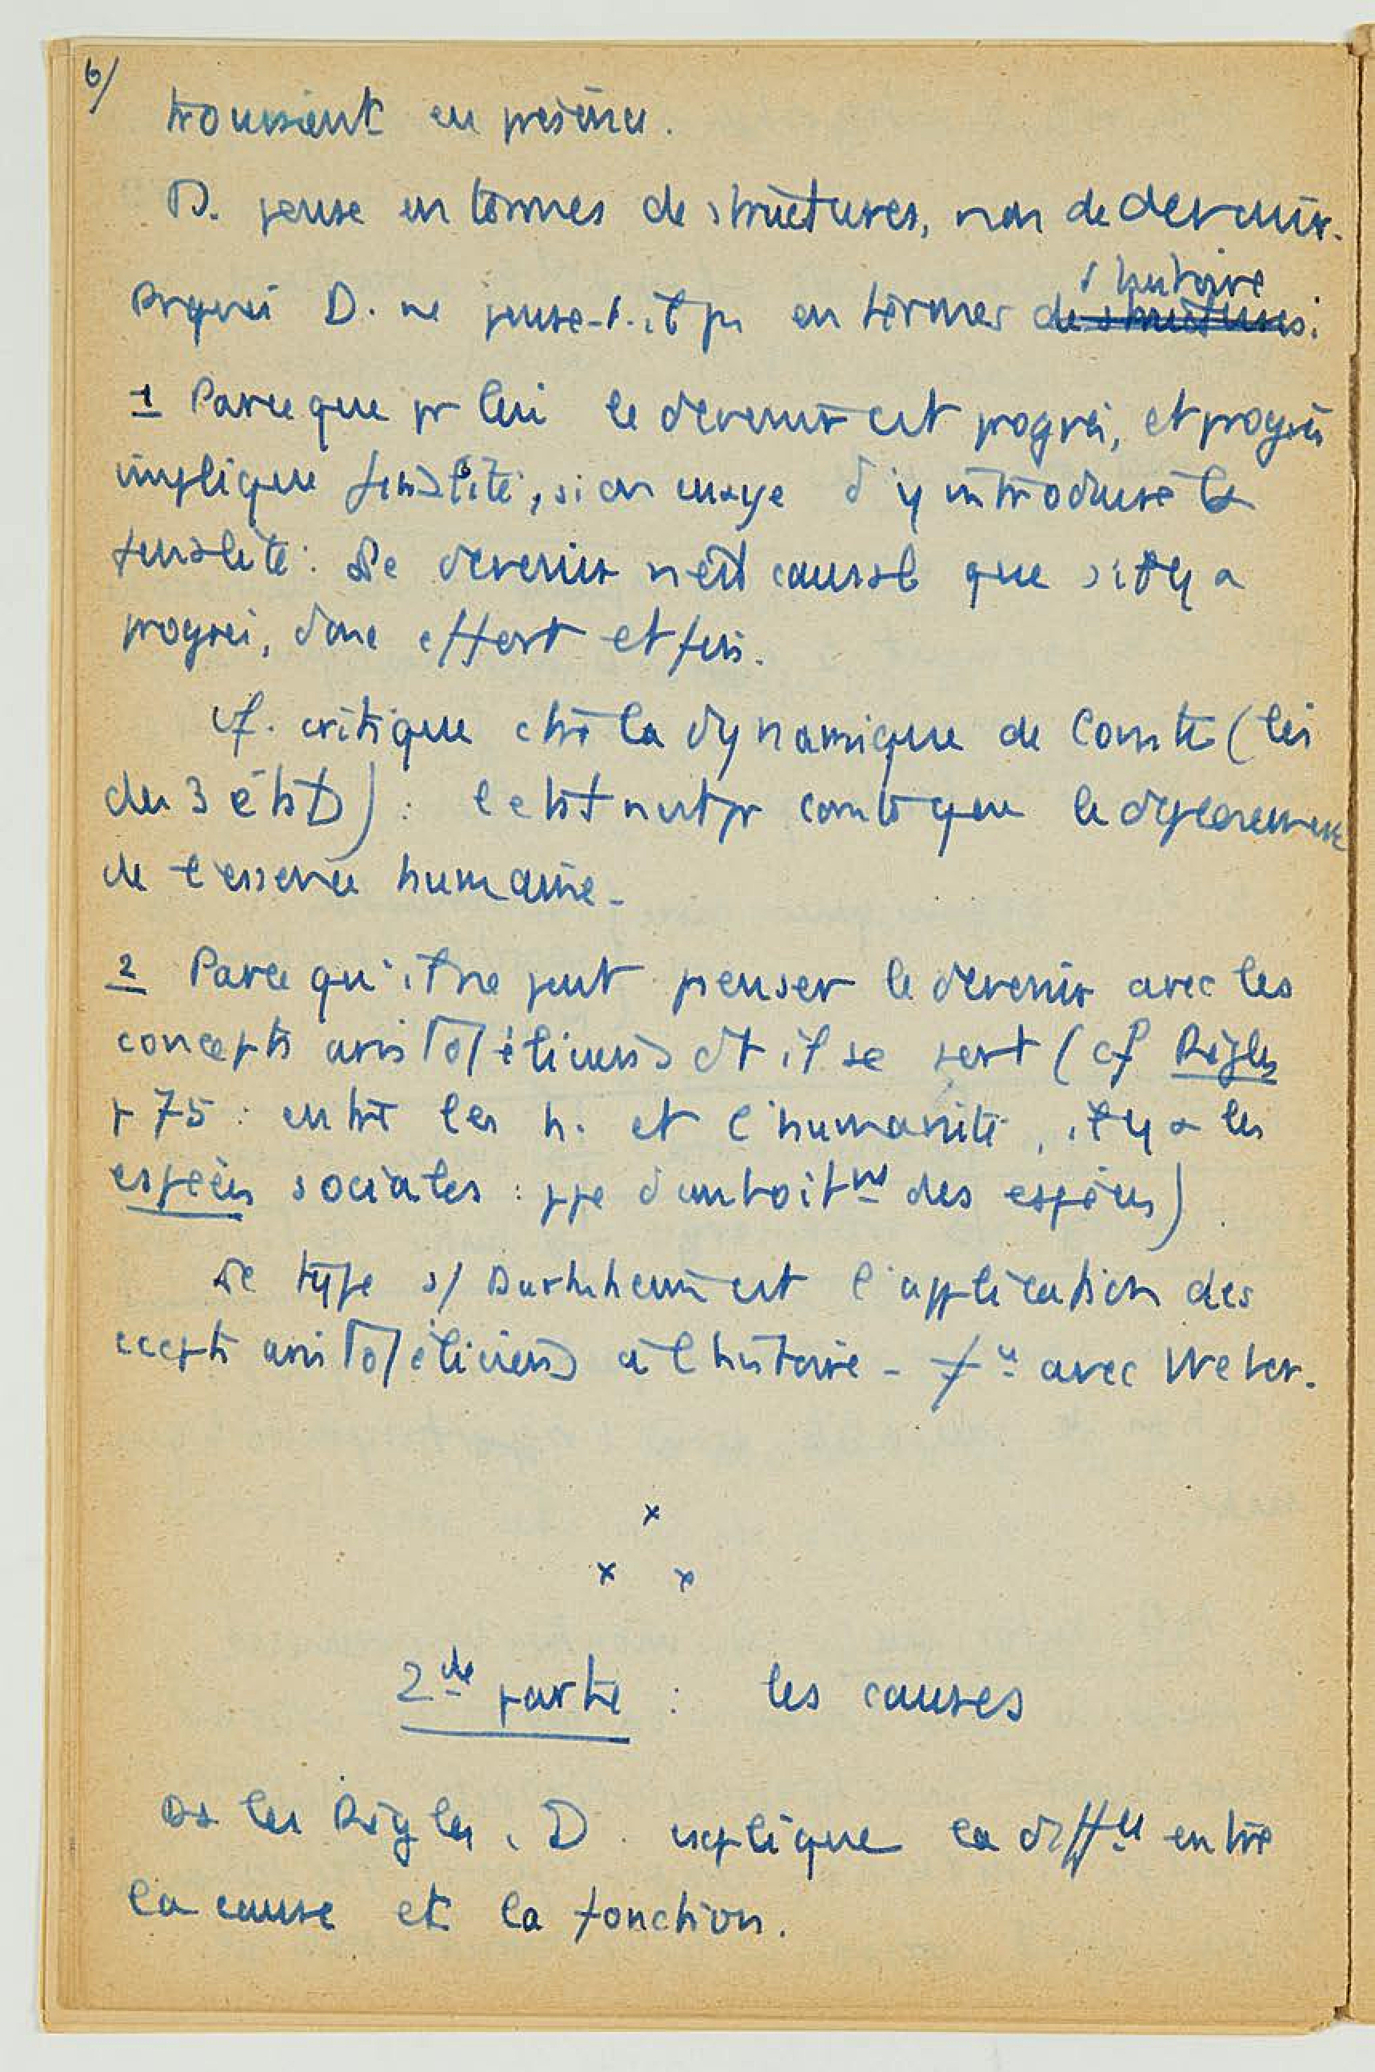 6/
trouvaient en présence.
D. pense en termes de structures, non de devenir.
Prquoi D. ne pense-t-il ps en termes d'histoire de structures.
1 Parce que pr lui le devenir est progrès, et progrès
implique finalité, si on essaye d'y introduire la
finalité. Le devenir n'est causal que si il y a
progrès, donc effort et fin.
cf. critique ctre la dynamique de Comte (loi
des 3 états) : l'état n'est pr Comte que le déploiement
de l'essence humaine.
2 Parce qu'il ne peut penser le devenir avec les
concepts aristotéliciens dt il se sert (cf Règles
p 75 : entre les h. et l'humanité, il y a les
espèces sociales : ppe d'emboitnt des espèces).
Le type s/ Durkheim est l'application des
ccepts aristotéliciens à l'histoire - ≠ce avec Weber.
x
x x
2de partie : les causes
Ds les Règles, D. explique la diffce entre
la cause et la fonction.